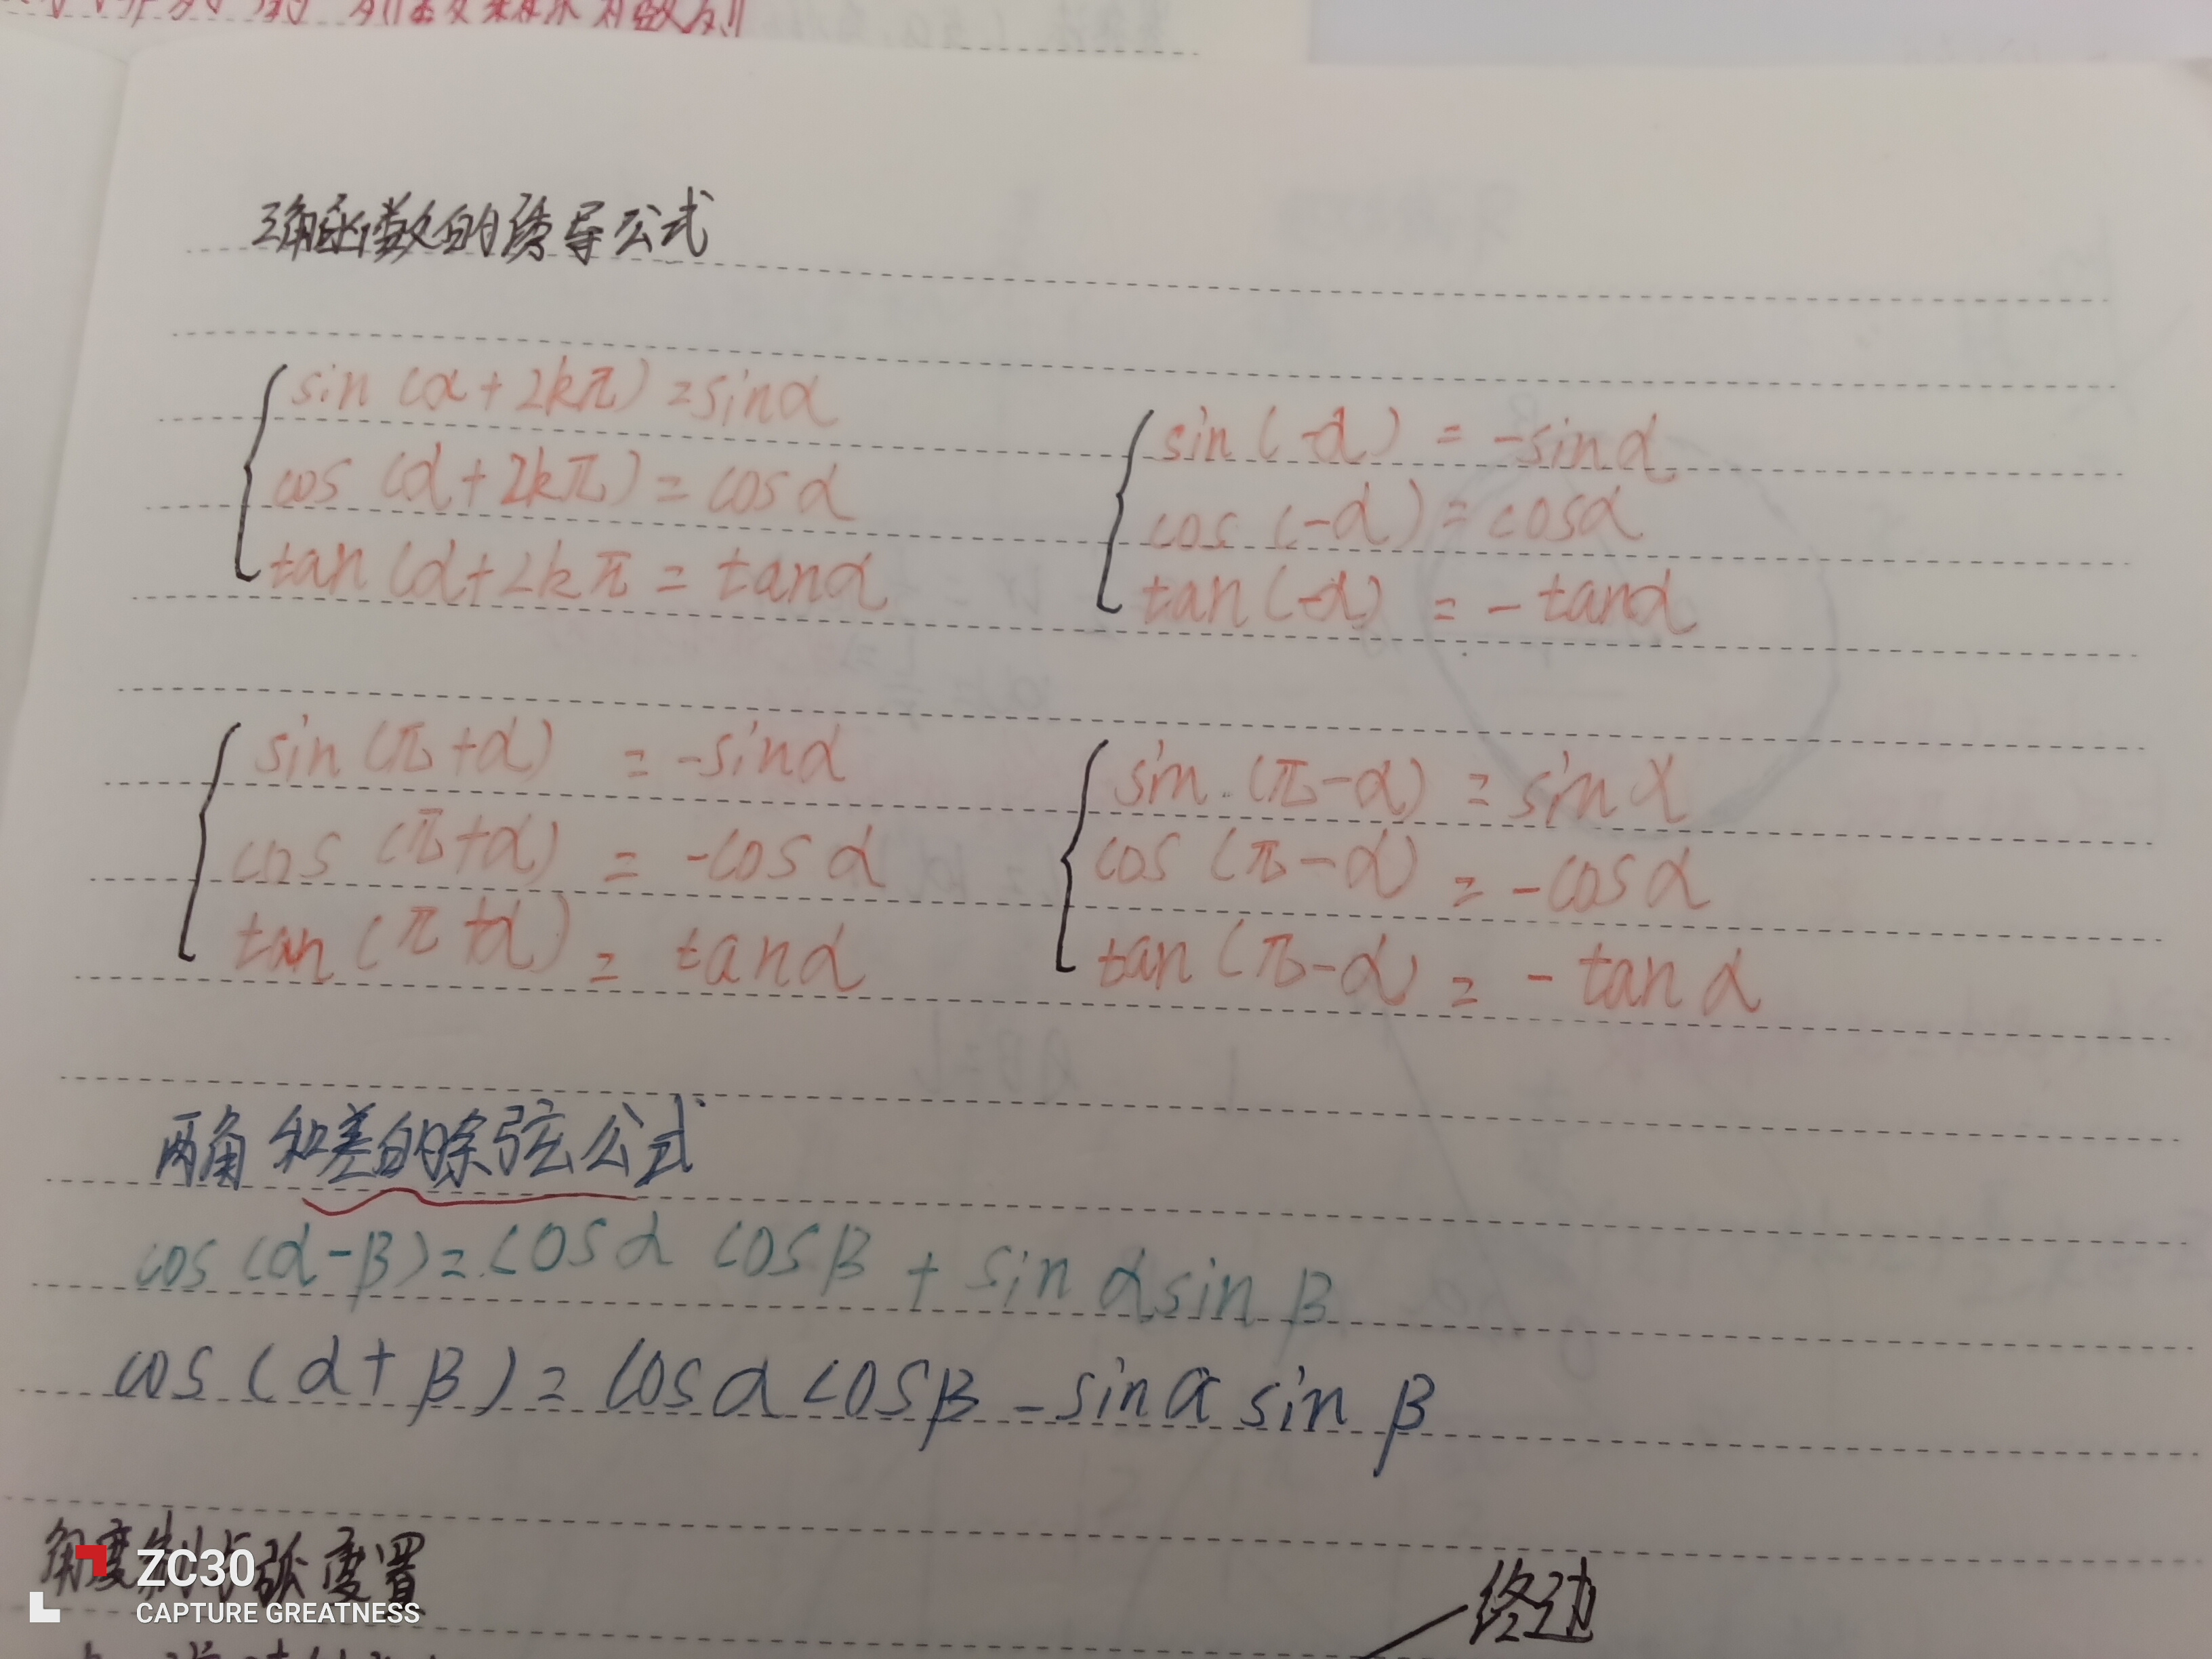 三角函数的诱导公式
sin(α+2kπ)=sinα
cos(α+2kπ)=cosα
tan(α+2kπ=tanα
sin(-α)=-sinα
cos(-α)=cosα
tan(-α)=-tanα
sin(π+α)=-sinα
cos(π+α)=-cosα
tan(π+α)=tanα
sin(π-α)=sinα
cos(π-α)=-cosα
tan(π-α)=-tanα
两角和差的余弦公式
cos(α-β)=cosα cosβ+sinαsinβ
cos(α+β)=cosα cosβ-sinα sinβ
角度制与弧度置
终边
ZC30
CAPTURE GREATNESS